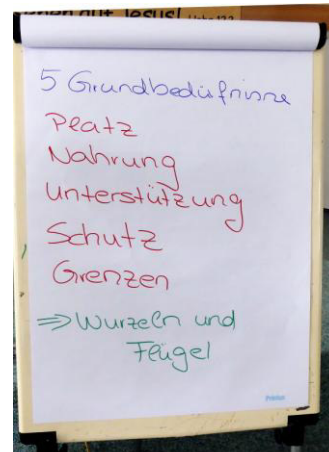 5 Grundbedürfnisse
Platz
Nahrung
Unterstützung
Schutz
Grenzen
⇒ Wurzeln und
Flügel